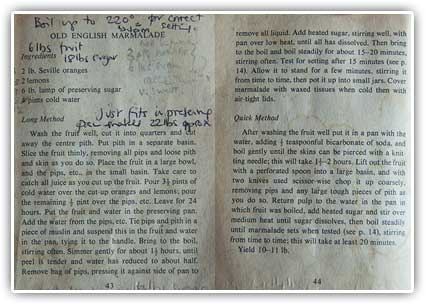 Boil up to 220° for correct
setting.
OLD ENGLISH MARMALADE
6lbs fruit
Ingredients 12lbs sugar
2 lb. Seville oranges
2 lemons
6 lb. lump of preserving sugar
4 pints cold water
Just fits in preserving
pan makes 22lbs
Long Method
Wash the fruit well, cut it into quarters and cut
away the centre pith. Put pith in a separate basin.
Slice the fruit thinly, removing all pips and loose pith
and skin as you do so. Place the fruit in a large bowl,
and the pips, etc., in the small basin. Take care to
catch all juice as you cut up the fruit. Pour 3½ pints of
cold water over the cut-up oranges and lemons; pour
the remaining ½ pint over the pips, etc. Leave for 24
hours. Put the fruit and water in the preserving pan.
Add the water from the pips, etc. Tie pips and pith in a
piece of muslin and suspend this in the fruit and water
in the pan, tying it to the handle. Bring to the boil,
stirring often. Simmer gently for about 1½ hours, until
peel is tender and water has reduced to about half.
Remove bag of pips, pressing it against side of pan to
43
remove all liquid. Add heated sugar, stirring well, with
pan over low heat, until all has dissolved. Then bring
to the boil and boil steadily for about 15–20 minutes,
stirring often. Test for setting after 15 minutes (see p.
14). Allow it to stand for a few minutes, stirring it
from time to time, then pot it up into small jars. Cover
marmalade with waxed tissues when cold then with
air-tight lids.
Quick Method
After washing the fruit well put it in a pan with the
water, adding ¼ teaspoonful bicarbonate of soda, and
boil gently until the skins can be pierced with a knit
ting needle; this will take 1½–2 hours. Lift out the fruit
with a perforated spoon into a large basin, and with
two knives used scissor-wise chop it up coarsely,
removing pips and any large tough pieces of pith as
you do so. Return pulp to the water in the pan in
which fruit was boiled, add heated sugar and stir over
medium heat until sugar dissolves, then boil steadily
until marmalade sets when tested (see p. 14), stirring
from time to time; this will take at least 20 minutes.
Yield 10–11 lb.
44